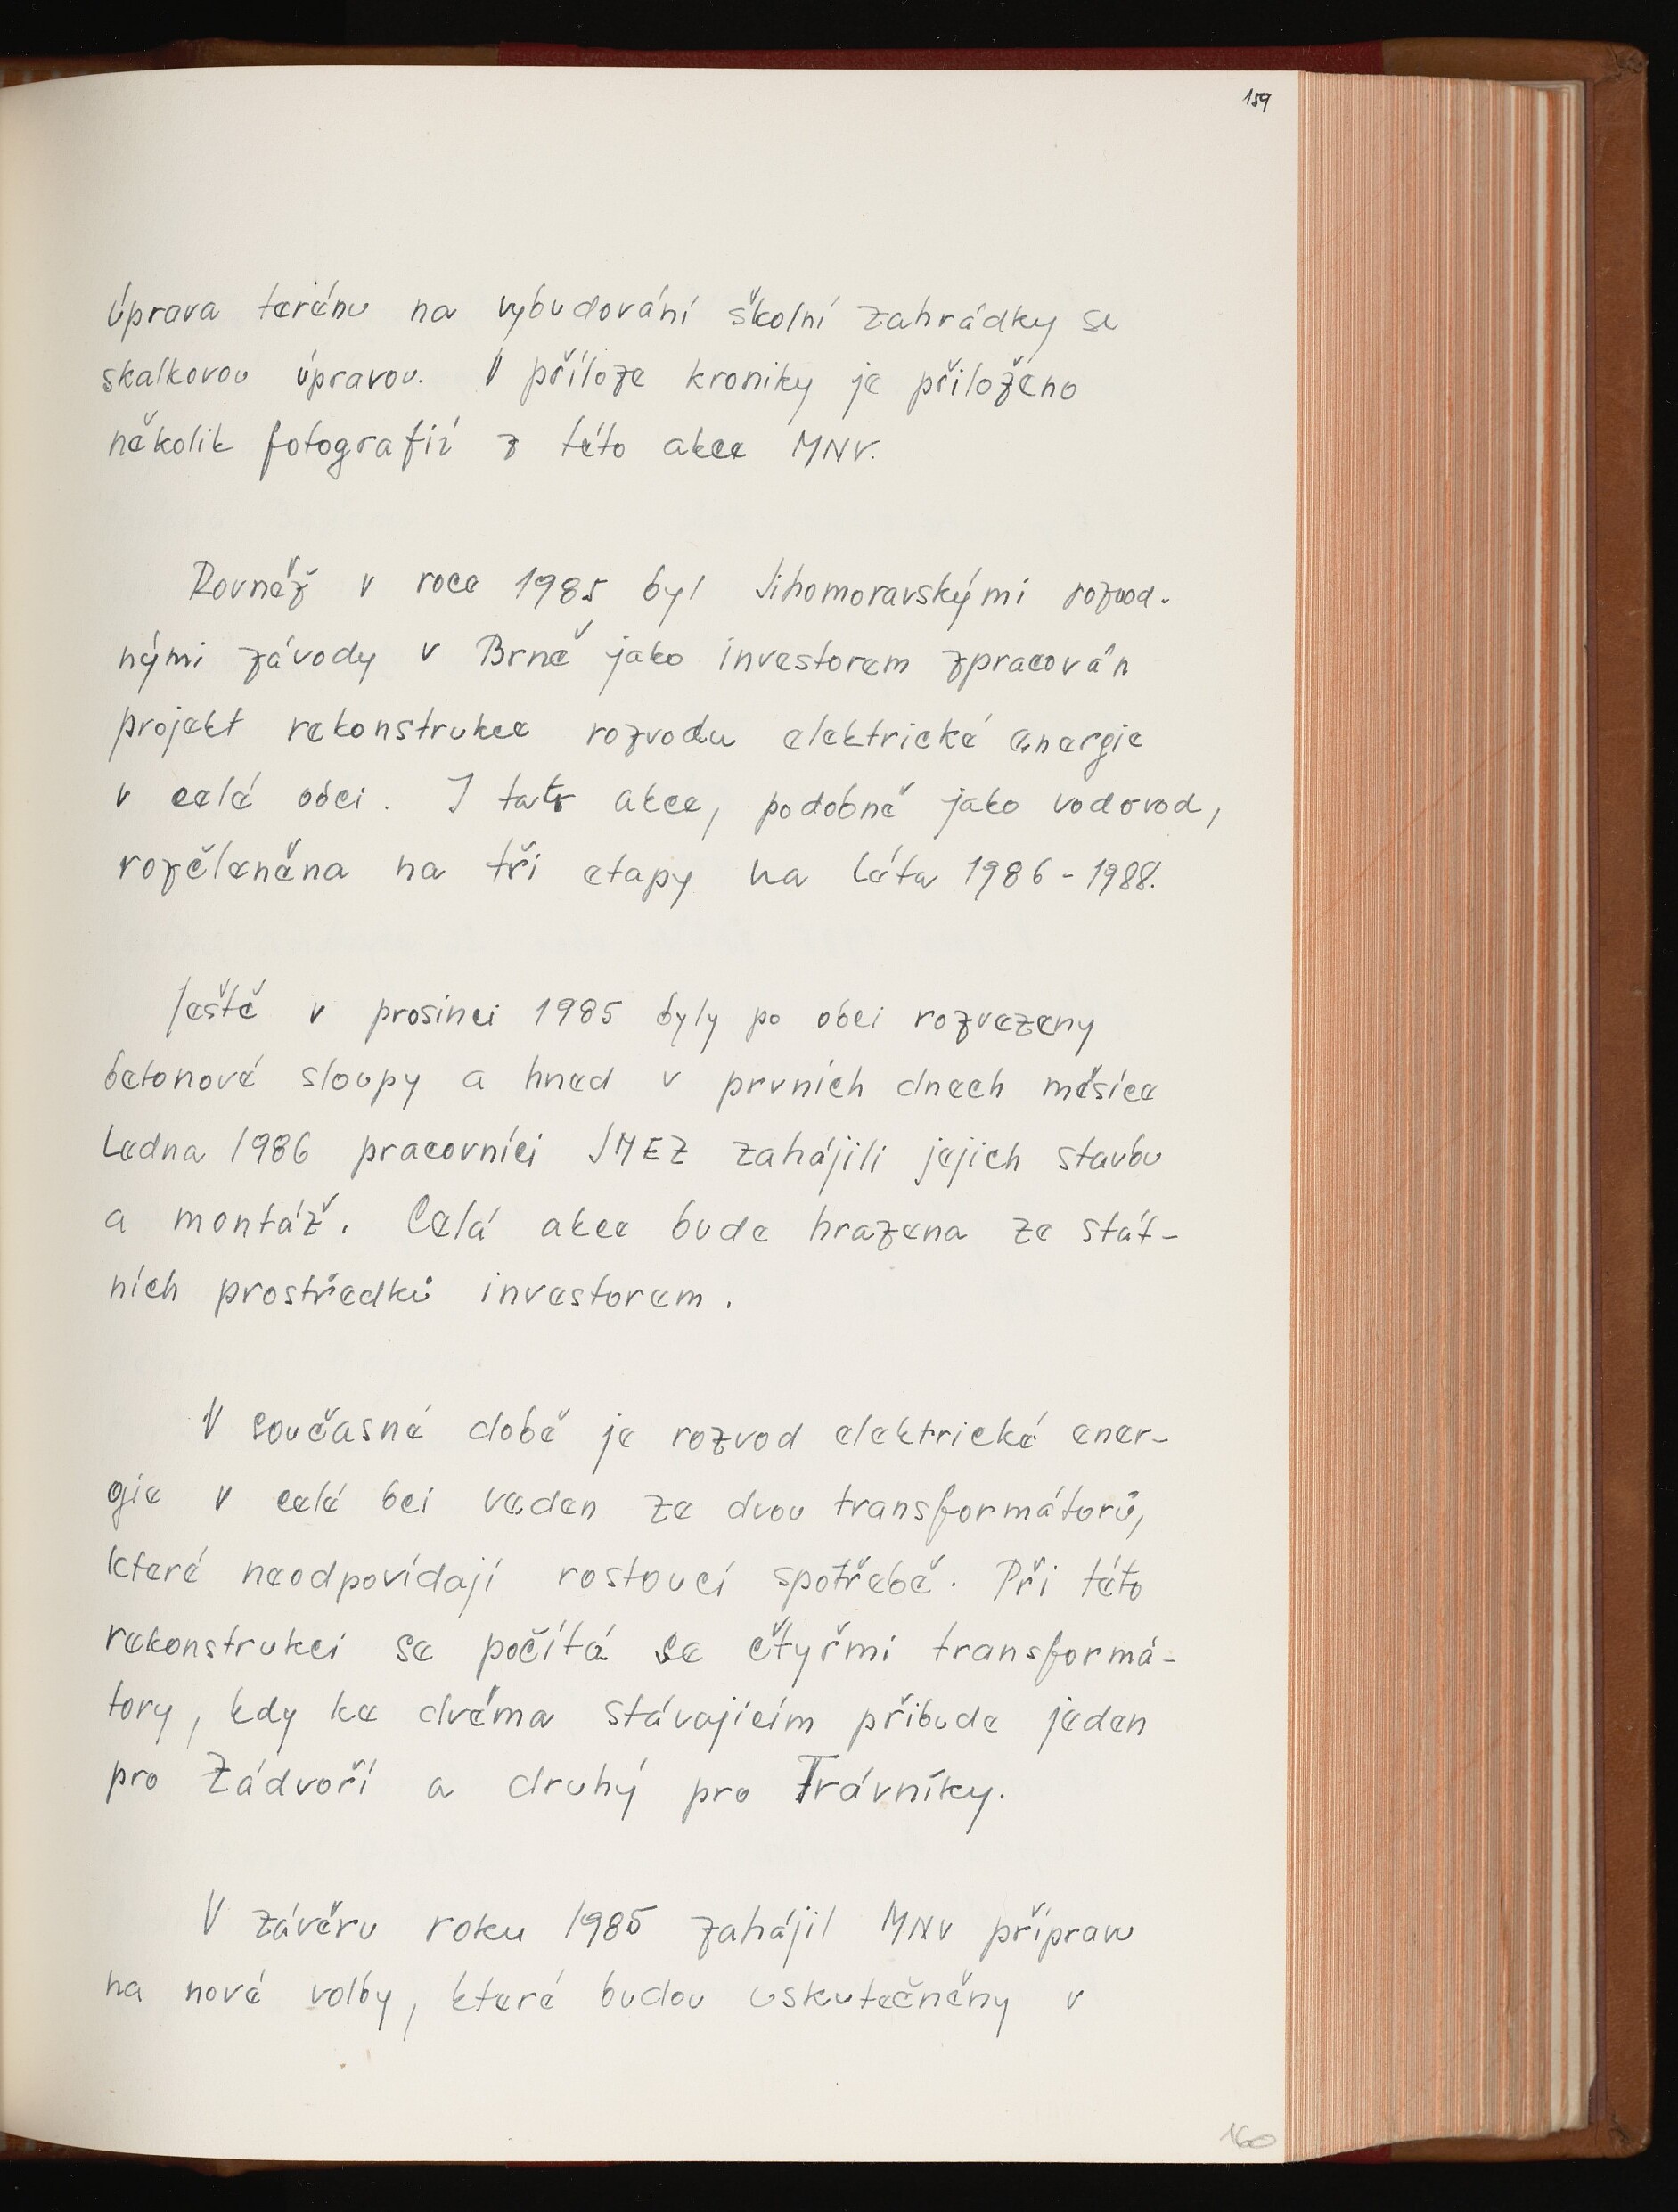 159
úprava terénu na vybudování školní zahrádky se
skalkovou úpravou. V příloze kroniky je přiloženo
několik fotografií z této akce MNV.
Rovněž v roce 1985 byl Jihomoravskými rozvod-
nými závody v Brně jako investorem zpracován
projekt rekonstrukce rozvodu elektrické energie
v celé obci. I tato akce, podobně jako vodovod,
rozčleněna na tři etapy na léta 1986-1988.
Ještě v prosinci 1985 byly po obci rozvezeny
betonové sloupy a hned v prvních dnech měsíce
ledna 1986 pracovníci JMEZ zahájili jejich stavbu
a montáž. Celá akce bude hrazena ze stát-
ních prostředků investorem.
V současné době je rozvod elektrické ener-
gie v celé bci veden ze dvou transformátorů,
které neodpovídají rostoucí spotřebě. Při této
rekonstrukci se počítá se čtyřmi transformá-
tory, kdy ke dvěma stávajícím přibude jeden
pro Zádvoří a druhý pro Trávníky.
V závěru roku 1985 zahájil MNV přípravu
na nové volby, které budou uskutečněny v
160